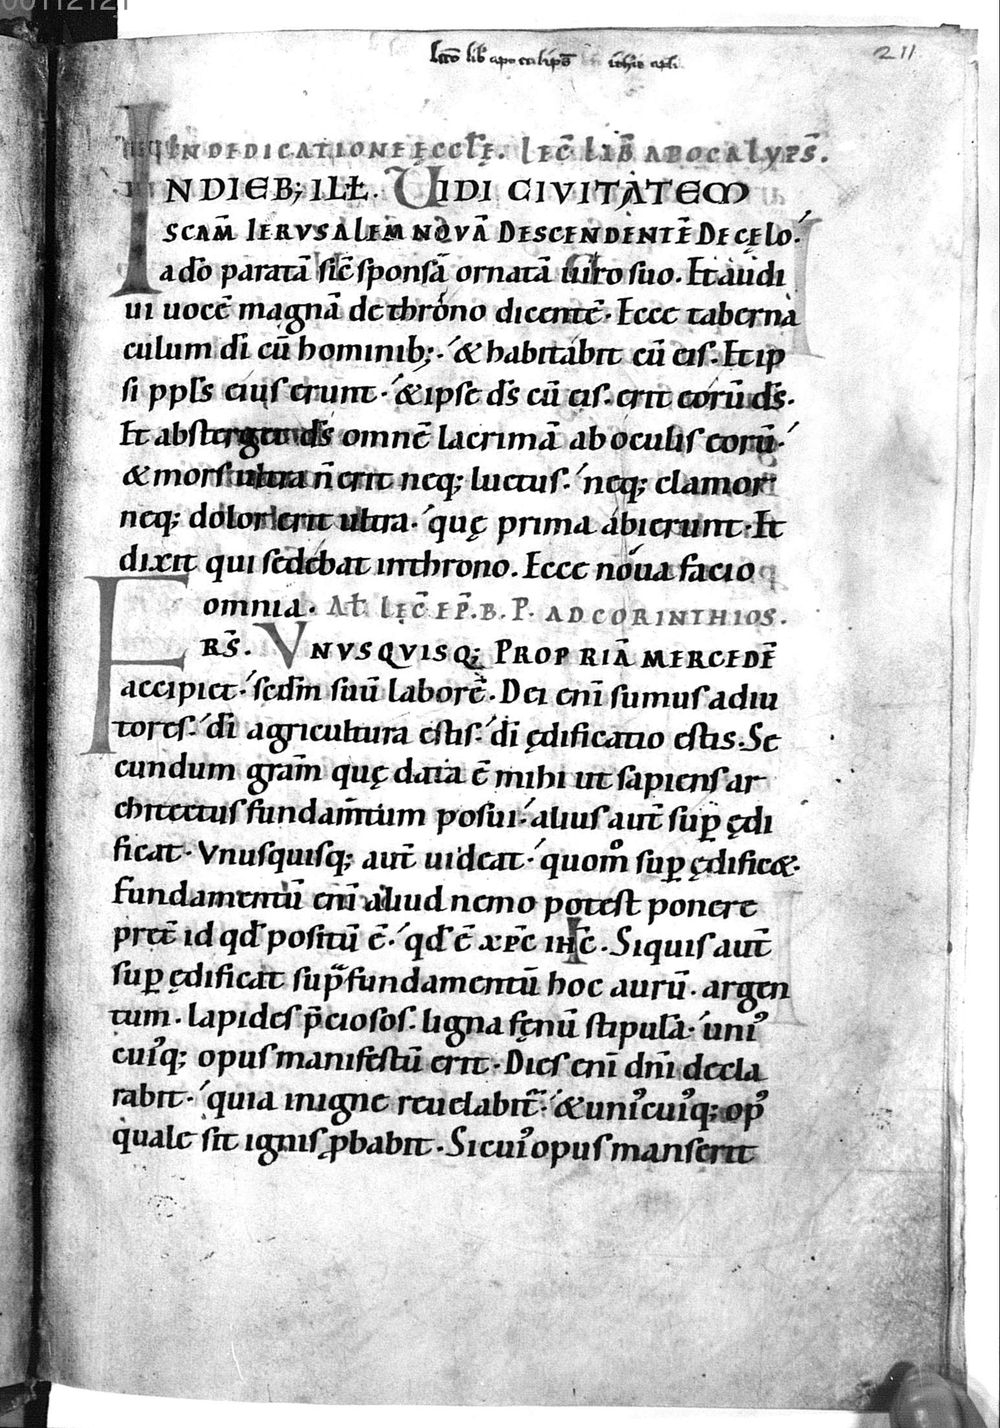 00112121
Lctō lib apocalipō iohis apli
211
IN DEDICATIONE ĘCCLĘ. LEC̄ LIB̄ APOCALYPS̄.
IN DIEB; ILŁ. UIDI CIVITATEM
SCAM̄ IERUSALEM NOVĀ DESCENDENTĒ DE CĘLO.
a dō paratā sic̄ sponsā ornatā uiro suo. Et audi
ui uocē magnā de throno dicentē. Ecce taberna
culum dī cū hominib;. & habitabit cū eis. Et ip
si ppls̄ eius erunt. & ipse ds̄ cū eis. erit eorū ds̄.
Et absterget ds̄ omnē lacrimā ab oculis eorū.
& mors ultra n̄ erit neq; luctus. neq; clamor
neq; dolor erit ultra. quę prima abierunt. Et
dixit qui sedebat in throno. Ecce noua facio
omnia. Aƚ. LĘC̄ EP̄. B. P. AD CORINTHIOS.
FRS̄. VNUSQUISQ; PROPRIĀ MERCEDĒ
accipiet. scdm̄ suū laborē. Dei enī sumus adiu
tores. dī agricultura estis. dī ędificatio estis. Se
cundum gram̄ quę data ē mihi ut sapiens ar
chitectus fundam̄tum posui. alius aut̄ suꝑ ędi
ficat. Vnusquisq; aut̄ uideat. quom̊ suꝑ ędific&.
Fundamentū enī aliud nemo potest ponere
pret̄ id qd̄ positū ē. qd̄ ē xp̄c ih̄c. Siquis aut̄
suꝑ ędificat sup̄ fundamentū hoc aurū. argen
tum. lapides p̄ciosos. ligna fęnū stipulā. uni᾽
cui᾽q; opus manifestū erit. Dies enī dn̄i decla
rabit. quia in igne reuelabit̄. & uni᾽cui᾽q; op᾽
quale sit ignis ꝓbabit. Si cui᾽ opus manserit